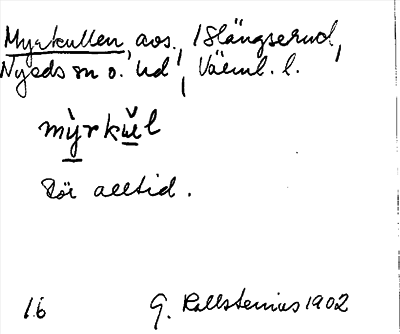 Myrkullen, avs., i Slängserud,
Nyeds sn o. hd, Värml. l.
mỳrkŭl
Bör alltid.
16 G. Kallstenius 1902